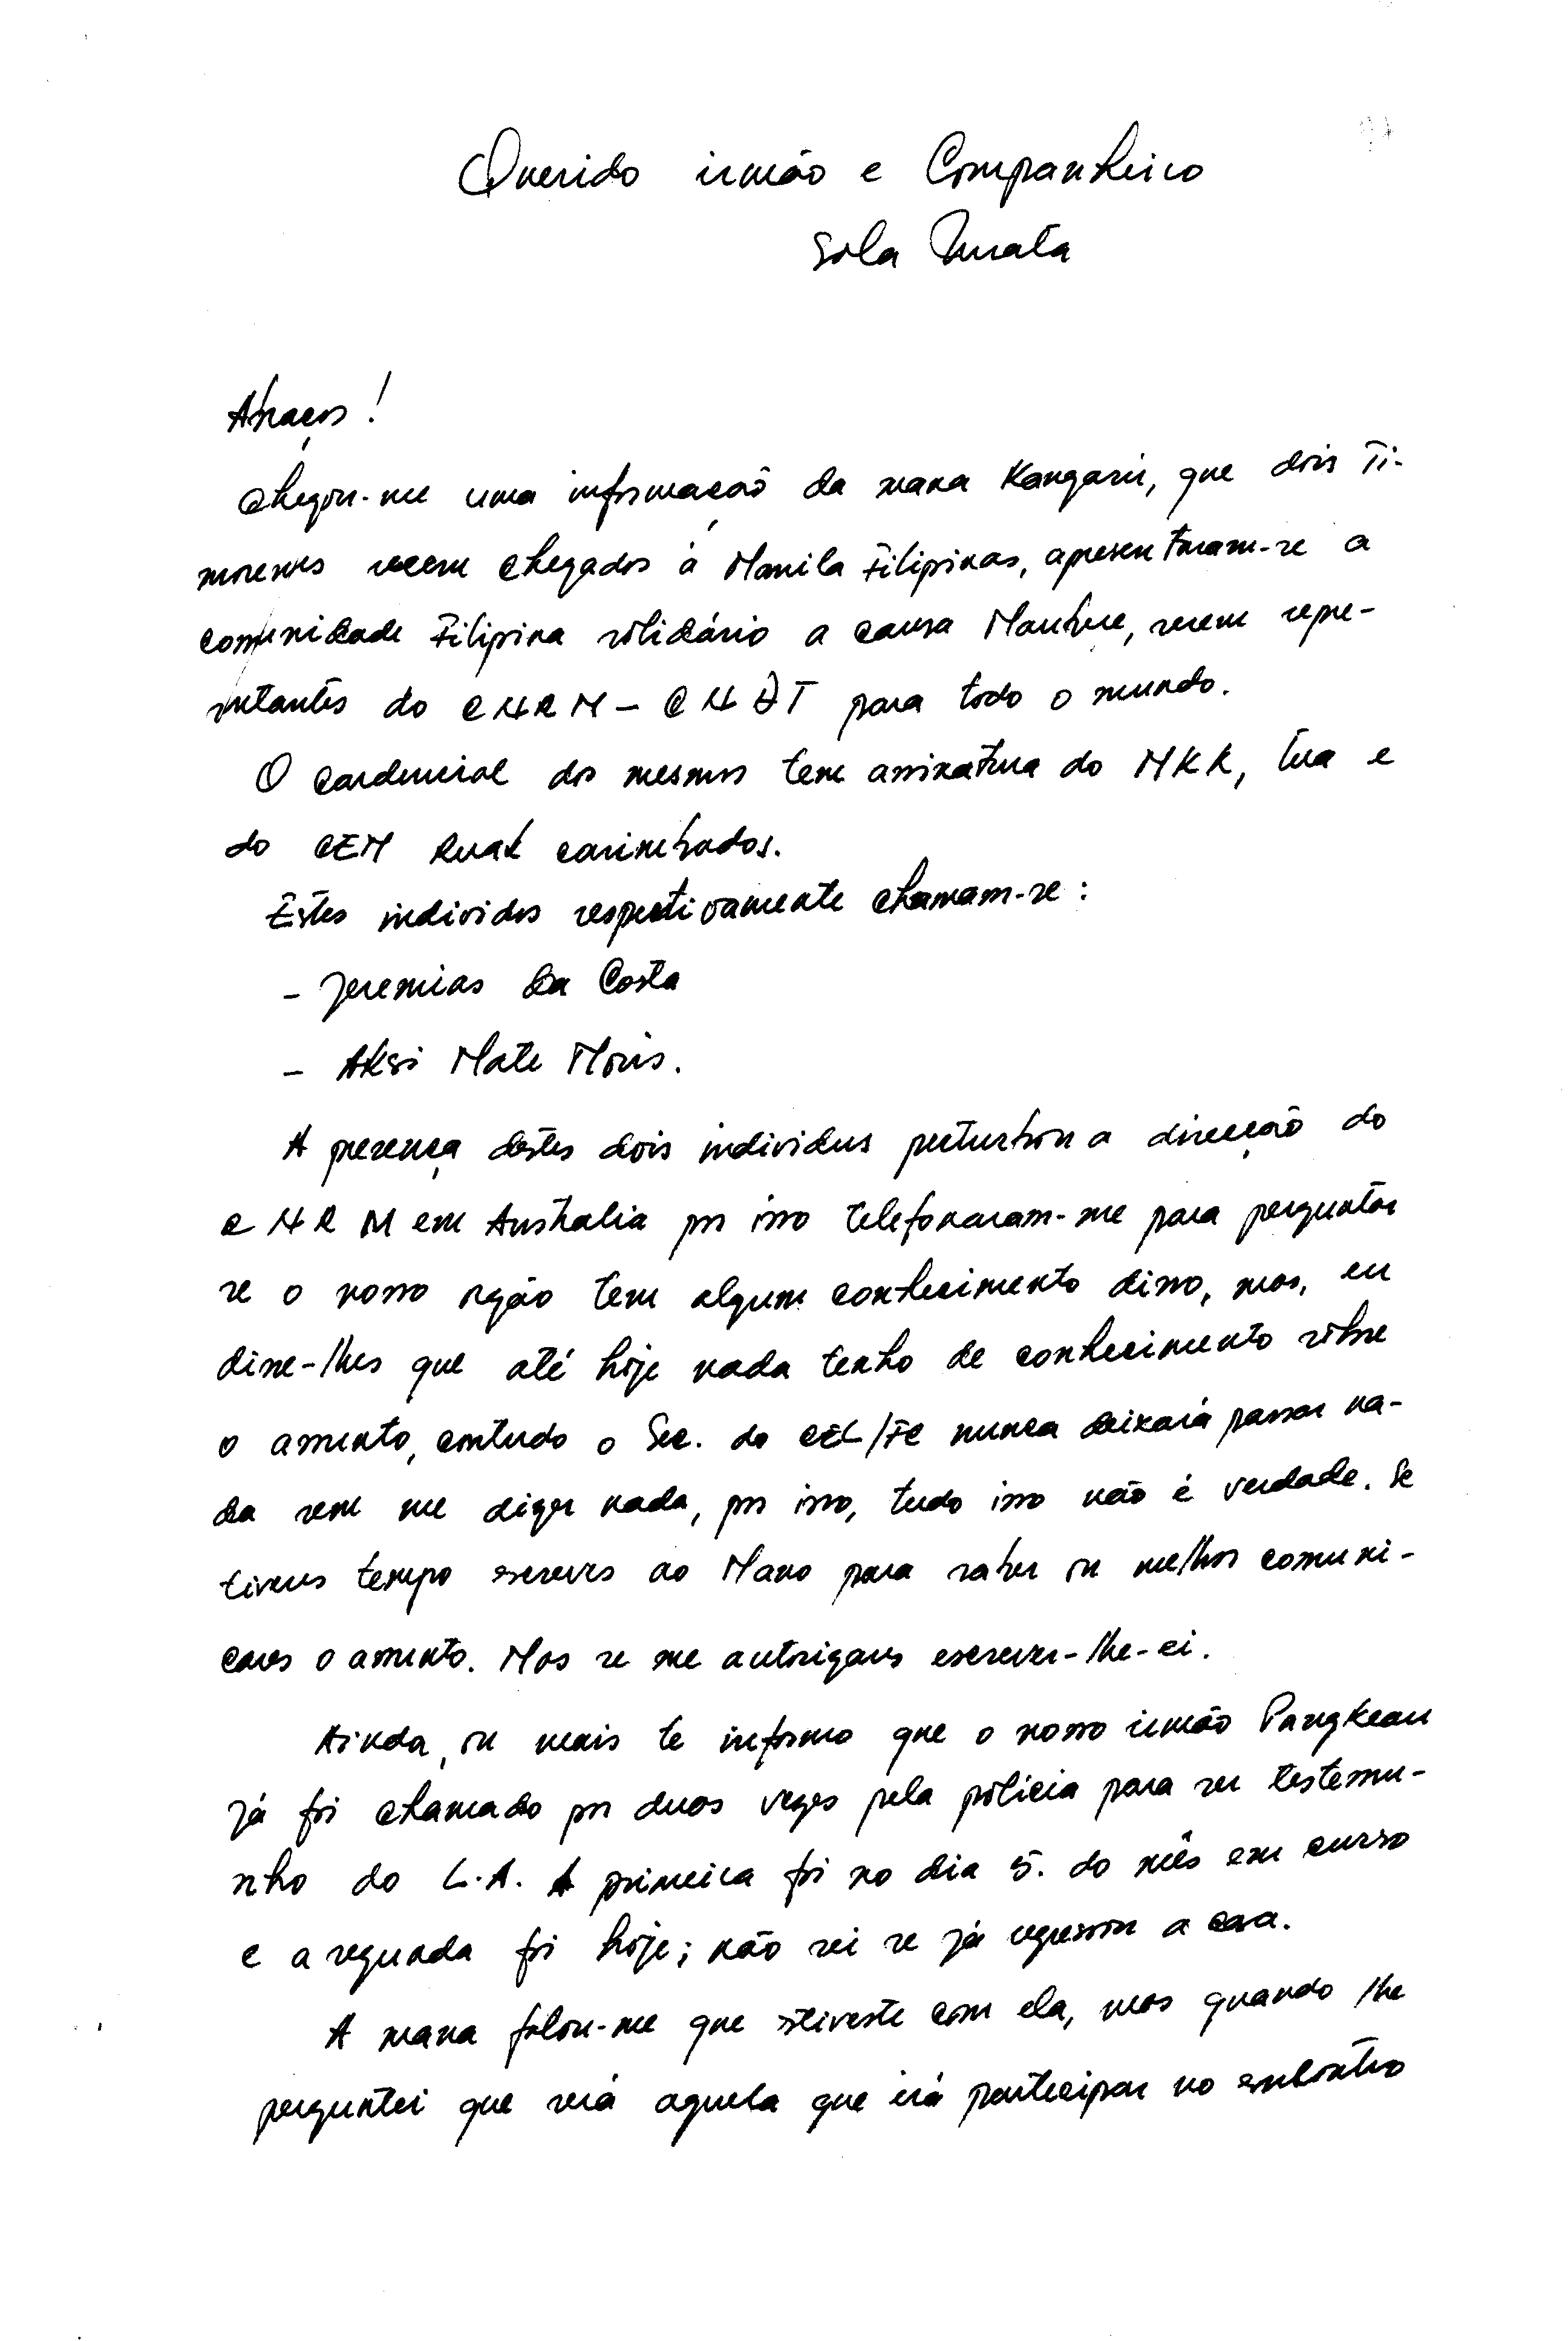 Querido irmão e Companheiro
Sola Murata
Abraços!
Chegou-me uma informação da mana Kangarú, que dois Ti-
morenses recem chegados á Manila Filipinas, apresentaram-se a
comunidade Filipina solidário a causa Maubere, serem repre-
sentantes do CNRM - CNJT para todo o mundo.
O cardencial dos mesmos tem assinatura do MKK, tua e
do CEM Ruak carimbados.
Estes individos respectivamente chamam-se:
- Jeremias da Costa
- Aksi Mate Moris.
A presença destes dois individus perturbou a direcção do
CNRM em Australia por isso telefonaram-me para perguntar
se o nosso orgão tem algum conhecimento disso, mas, eu
disse-lhes que até hoje nada tenho de conhecimento sobre
o assunto, contudo o Sec. do CEL/FC nunca deixará passar na-
da sem me dizer nada, por isso, tudo isso não é verdade. Se
tiveres tempo escreves ao Mano para saber ou melhor comuni-
cares o assunto. Mas se me autorizares escrever-lhe-ei.
Ainda, ou mais te informo que o nosso irmão Pangkeau
já foi chamado por duas vezes pela policia para ser testemu-
nho do L.A. A primeira foi no dia 5. do mês em curso
e a segunda foi hoje; não sei se já regressou a casa.
A mana falou-me que stiveste com ela, mas quando lhe
perguntei que será aquela que irá participar no encontro